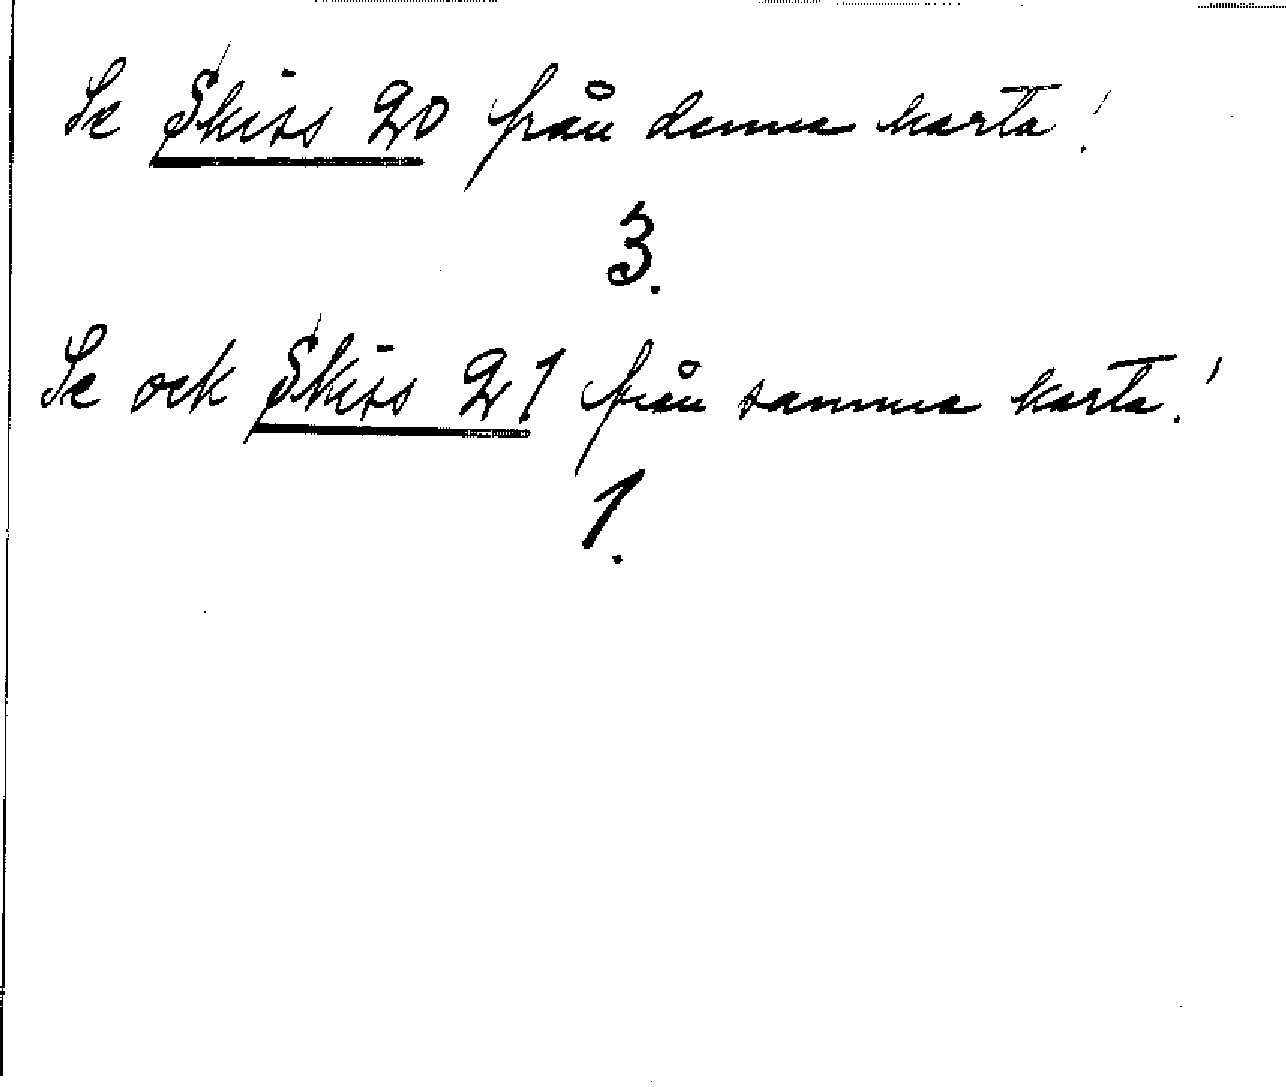 Se Skiss 20 från denna karta!
3.
Se ock Skiss 21 från samma karta!
1.